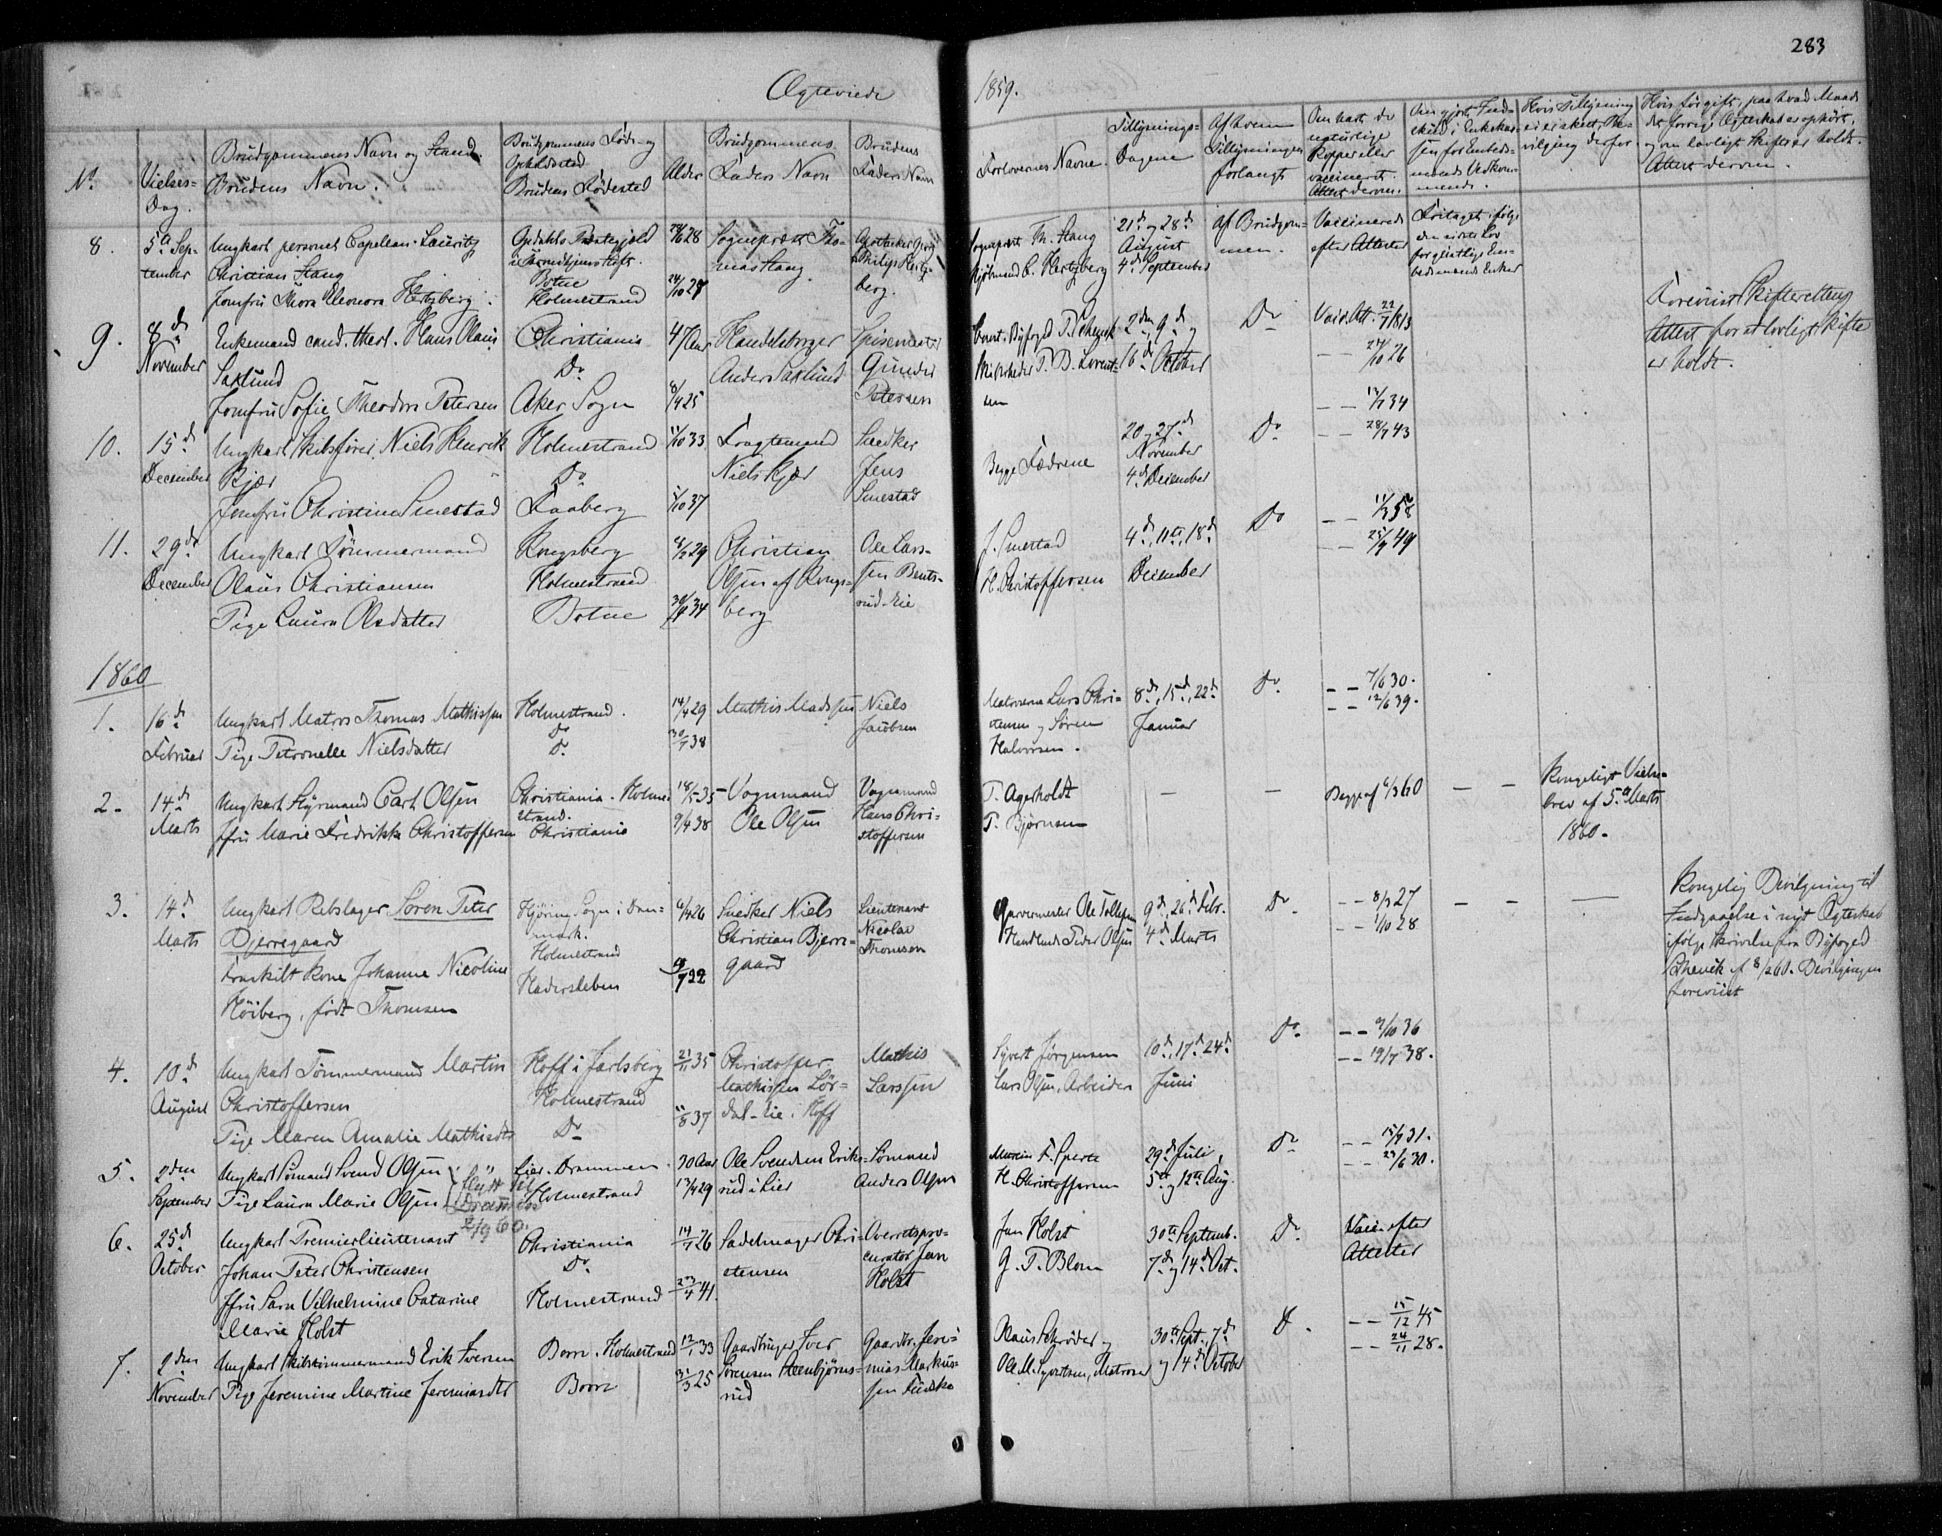 283
Ægteviede
1859.
No
Vielses-
Dag.
Brudgommens Navn og Stand
Brudens Navn.
Brudgommens Føde- og
Opholdssted
Brudens Fødested
Alder
Brudgommens
Faders Navn
Brudens
Faders Navn
Forlovernes Navne
Tillysnings-
Dagene
Af hvem
Tillysningen
forlangt
Om havt de
naturlige
Kopper eller
vaccineret.
Attest derom.
Om gjort Ind-
skud i Enkekas-
sen for Embeds-
mænds Vedkom-
mende.
Hvis Tillysning
ei er skeet, Be-
vilgning derfor
Hvis før gift, paa hvad Maade
det forrige Ægteskab er ophørt,
og om lovligt Skifte er holdt.
Attest derom.
8.
5te Sep-
tember
Ungkarl personel Capelean Lauritz
Christian Stang
Jomfru Thora Eleonora Hertzberg.
Opdahls Præstegjeld
i Trondhjems Stift.
Botne
Holmestrand
28
24/10 27
Sognepræst Tho-
mas Stang.
Apotheker
Philip Hertz-
berg.
Sognepræst Th. Stang
Kjøbmand C. Hertzberg
21de og 28de
August
4de September
Af Brudgom-
men.
Vaccinerede
efter Attester
Fritaget ifølge
den sidste Lov
for geistlige Em-
bedsmænds Enker
9.
8de
November
Enkemand cand. theol. Hans Olaus
Saxlund
Jomfru Sofie Theodora Petersen
Christiania
Do
Aker Sogn
47 Aar
8/4 25
Handelsborger
Anders Saxlund
Spisevert
Gunder
Petersen
Const. Byfoged P. Schenck
Murmester P. B. Lorent-
sen
2den, 9de og
16de October
Do
Vacc. Att. 22/7 1813
— — 27/10 26
Forevist Skifterettens
Attest for at lovligt Skifte
er holdt.
10.
15de
December
Ungkarl Skibsfører Niels Henrik
Kjær
Jomfru Christine Smestad
Holmestrand
Do
Faaberg
5/10 33
5/10 37
Fragtemand
Niels Kjær
Snedker
Jens
Smestad
Begge Fædrene
20 og 27de
November
4de December
Do
— — 13/7 34
— — 28/7 43
11.
29de
December
Ungkarl Tømmermand
Olaus Christiansen
Pige Laura Olsdatter
Kongsberg
Holmestrand
Botne
4/2 29
34
Christian
Olsen af Kongs-
berg
Ole Lars-
sen Bents-
rud-Eie
J. Smestad
H. Christoffersen
4de, 11te, 18de
December
Do
— — 11/3 58
— — 25/9 49
1860
1.
16de
Februar
Ungkarl Matros Thomas Mathissen
Pige Petronelle Nielsdatter
Holmestrand.
Do
Do
14/4 29
30/7 38
Mathis Madssen
Niels
Jacobsen
Matroserne Lars Chri-
stensen og Søren
Halvorsen.
8de, 15de, 22de
Januar
Do
— — 7/6 30.
— — 12/6 39.
2.
14de
Marts
Ungkarl Styrmand Carl Olsen
Jfru Marie Fredrikke Christoffersen
Christiania. Holme-
strand.
Christiania
18/5 35
9/4 38
Vognmand
Ole Olsen
Vognmand
Hans Chri-
stoffersen
P. Agerholdt
P. Bjørnsen
—
—
Begge af 6/3 60
— —
Kongeligt Vielse-
brev af 5te Marts
1860.
3.
14de
Marts
Ungkarl Rebslager Søren Peter
Bjerregaard
Fraskilt Kone Johanne Nicoline
Høiberg, født Thomsen
Hjøring Sogn i Dan-
mark.
Holmestrand
Hadersleben
6/4 26
22
Snedker Niels
Christian Bjerre-
gaard
Lieutenant
Nicolai
Thomsen
Garvermester Ole Tollefsen
Handlende Peder Olsen
9de, 26de Febr.
4de Marts
Do
— — 8/7 27
— — 1/10 28
— — —
Kongelig Bevilgning til
Indgaaelse i nyt Ægteskab
ifølge Skrivelse fra Byfoged
Schenck af 8/2 60. Bevilgningen
forevist
4.
10de
August
Ungkarl Tømmermand Martin
Christoffersen
Pige Maren Amalie Mathisdtr
Hoff i Jarlsberg
Holmestrand
Do
21/11 35
11/8 37
Christoffer
Mathissen Lør-
dal-Eie i Hoff
Mathis
Larssen
Syvert Jørgensen
Lars Olsen, Arbeider
10de, 17de, 24de
Juni
Do
— — 9/10 36
— — 19/7 38.
5.
2den
September
Ungkarl Sømand Svend Olsen
Pige Laura Marie Olsen
flytt til
Drammen
2/9 60.
Lier. Drammen.
Holmestrand
30 Aar
13/4 29
Ole Svendsen Eriks-
rud i Lier
Sømand
Anders Olsen
H. Christoffersen
29de Juli,
5te og 12te Aug.
Do
— — 15/9 31.
— — 23/6 30.
6.
25de
October
Ungkarl Premierlieutenant
Johan Peter Christensen
Jfru Sara Vilhelmine Catarine
Marie Holst
Christiania
Do
Holmestrand
14/1 26
23/4 41.
Sadelmager Chri-
stensen
Overretspro-
curator Jan
Holst
Jan Holst
G. P. Blom
30te Septemb.
7de og 14de Oct.
Do
Vacc. efter
Attester
7.
2den
November
Ungkarl Skibstømmermand Erik Iversen
Pige Jeremine Martine Jeremiasdtr
Borre. Holmestrand
Borre
12/1 33
31/3 25
Gaardbruger Iver
Sørensen Steenbjørns-
rud
Gaardbr. Jere-
mias Markus-
sen
Claus Schrøder og
Ole M. Syvertsen, Matroser
30te Sept., 7de
og 14de October
— — 15/12 45
— — 24/11 28.